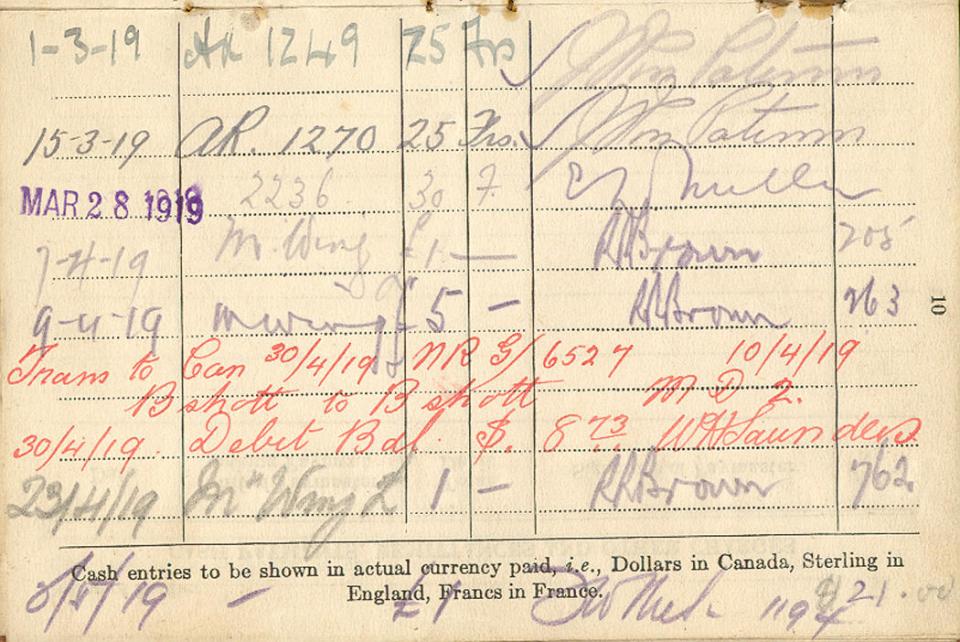 1-3-19 AR 1249 25 Frs
15-3-19 AR. 1270 25 Frs.
MAR 28 1919 2236 30 F.
7-4-19 M. Wing £1 — RRBrown 205
9-4-19 M Wing £5 — RRBrown 263
Trans to Can 30/4/19 NR G/ 6527 10/4/19
B shott to B shott M D 2.
30/4/19. Debit Bal. $. 8 73 WHSaunders
23/4/19 M Wing £ 1 — RRBrown 762
10
Cash entries to be shown in actual currency paid, i.e., Dollars in Canada, Sterling in
England, Francs in France.
/19 — £1 21.00